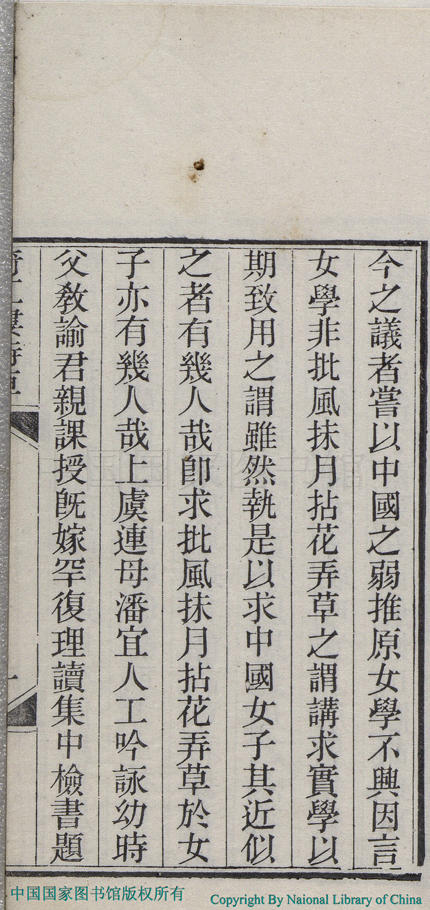 今之議者嘗以中國之弱推原女學不興因言
女學非批風抹月拈花弄草之謂講求實學以
期致用之謂雖然執是以求中國女子其近似
之者有幾人哉卽求批風抹月拈花弄草於女
子亦有幾人哉上虞連母潘宜人工吟詠幼時
父敎諭君親課授旣嫁罕復理讀集中檢書題
中国国家图书馆版权所有
Copyright By Naional Library of China